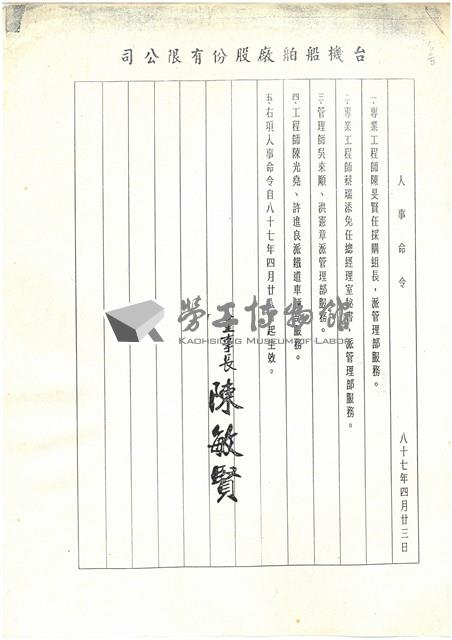 台機船舶廠股份有限公司
人事命令
八十七年四月廿三日
一、專業工程師陳旻賢任採購組長，派管理部服務。
二、專業工程師蔡瑞添免任總經理室秘書，派管理部服務。
三、管理師吳來順、洪憲章派管理部服務。
四、工程師陳光堯、許進良派鐵道車 服務。
五、右項人事命令自八十七年四月廿 起生效。
董事長 陳敏賢
勞工博物館
KAOHSIUNG MUSEUM OF LABOR